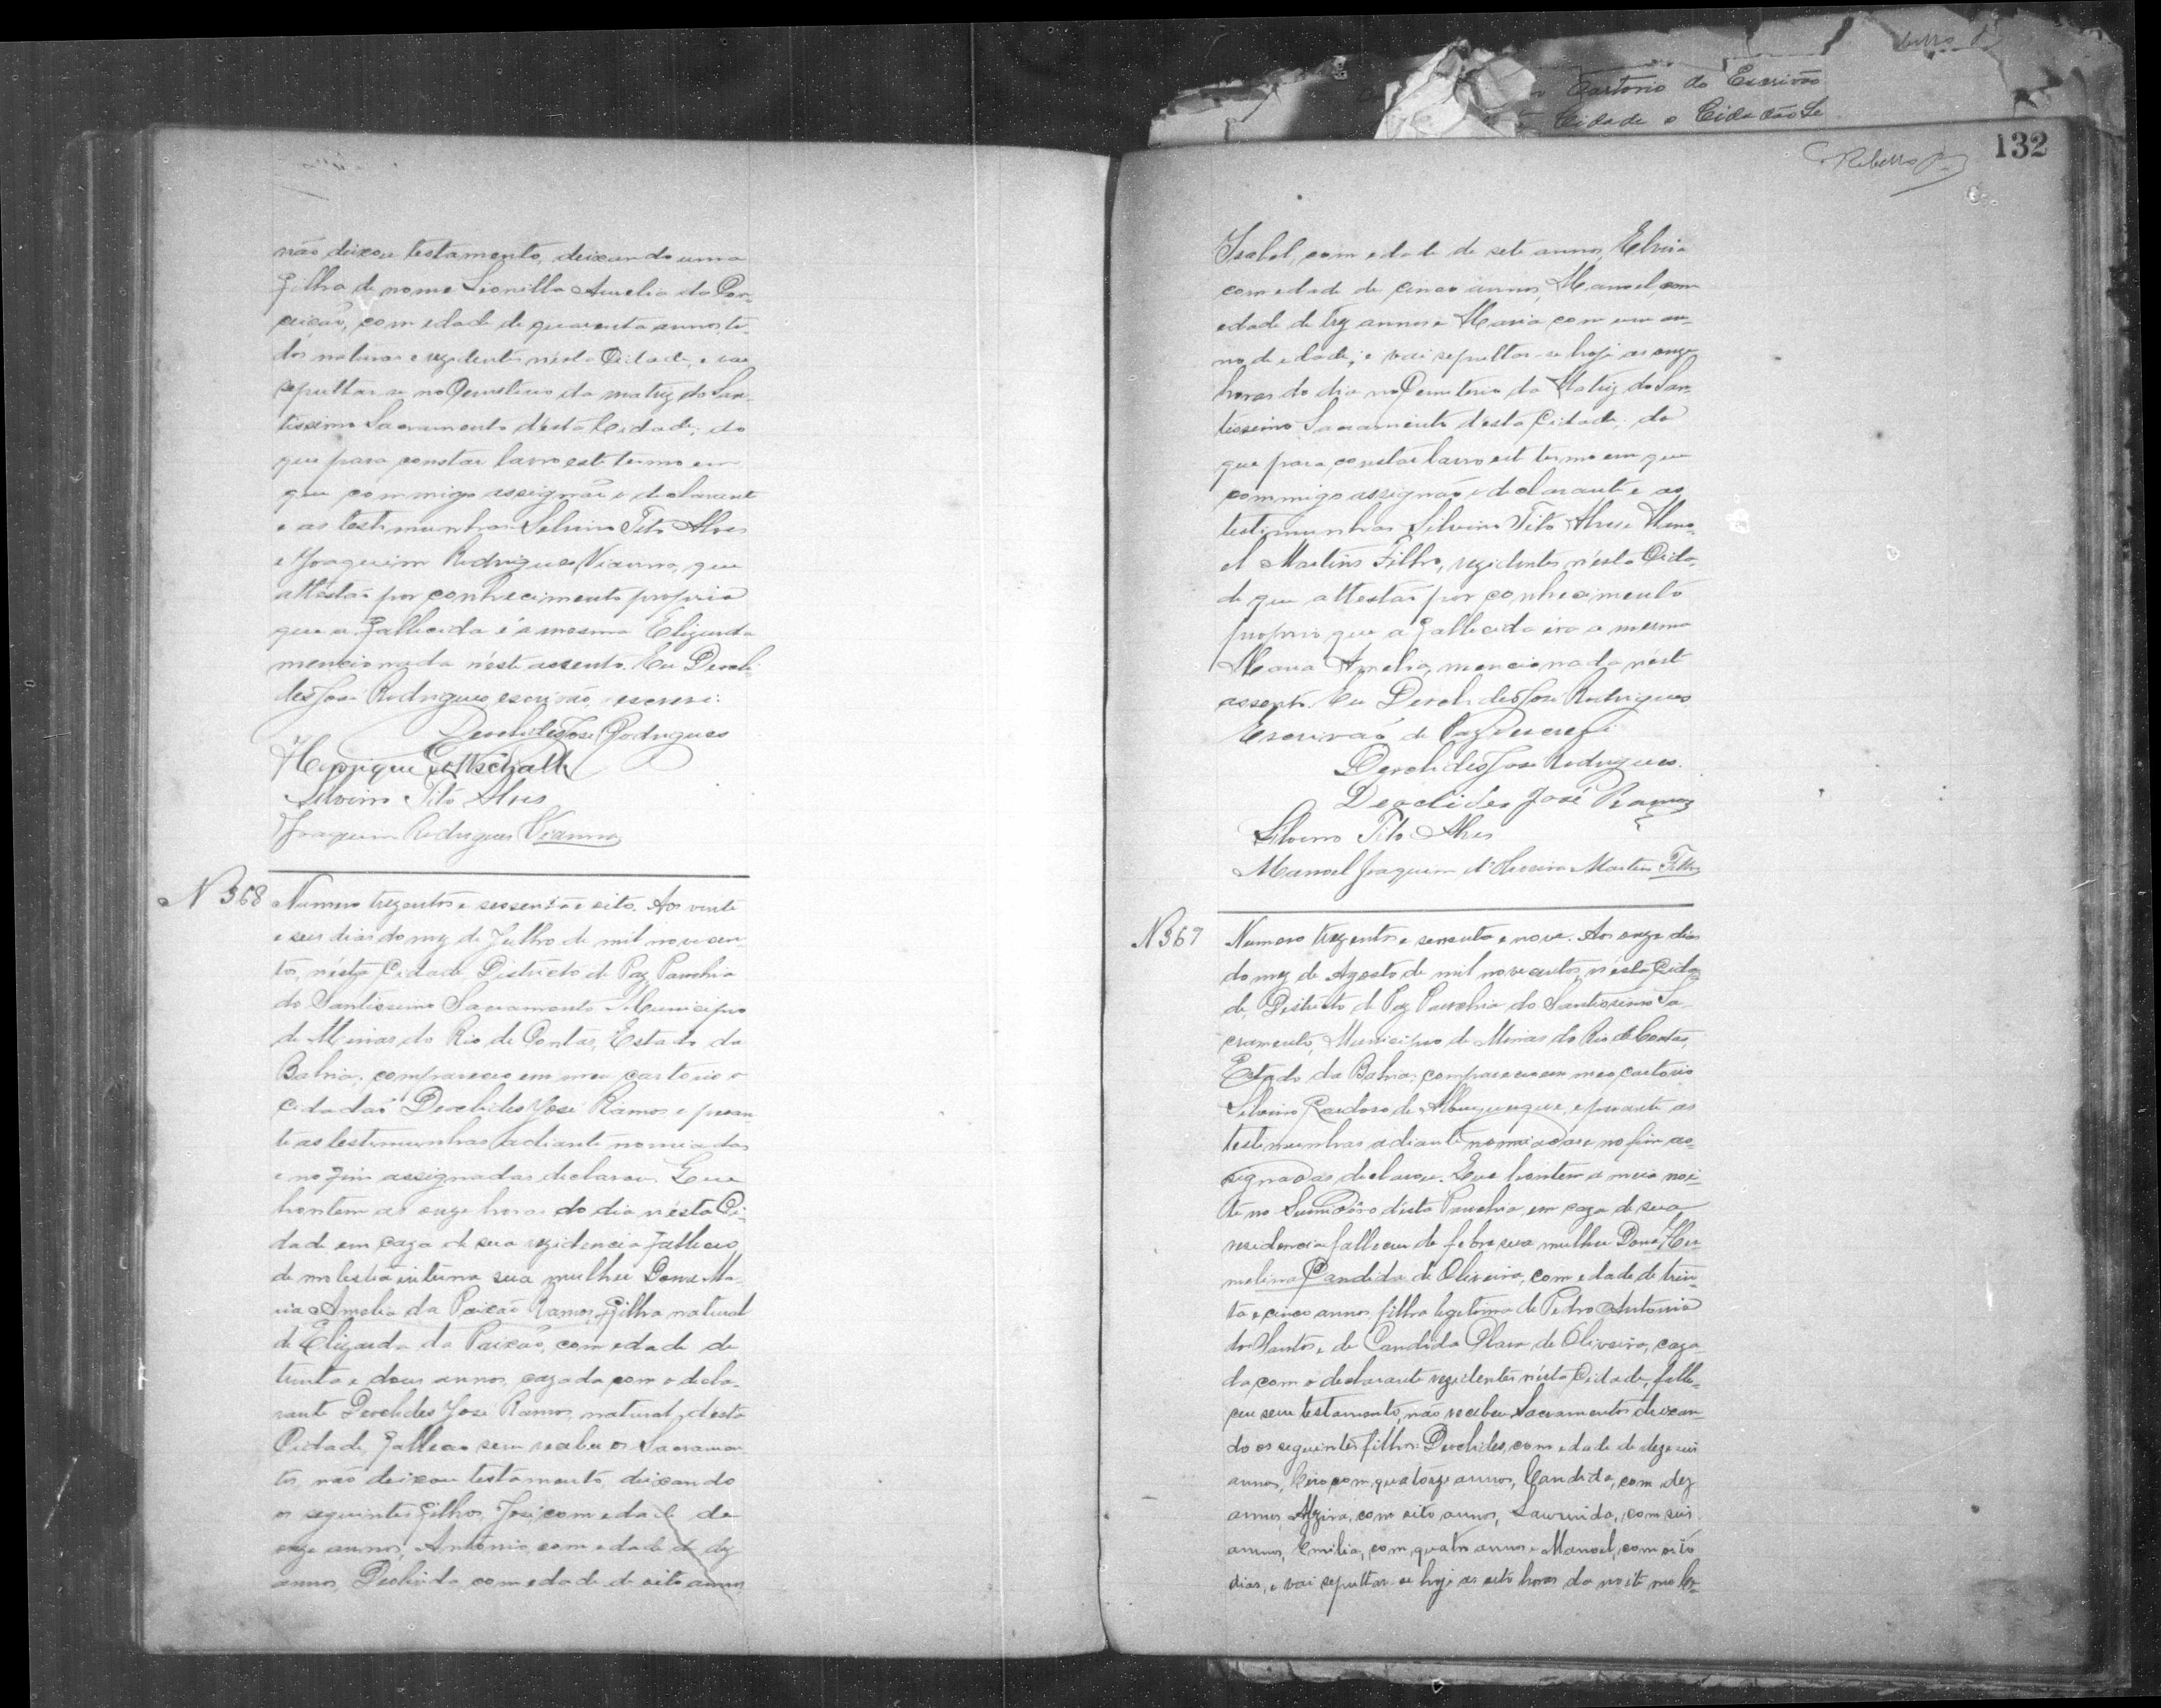 não deixou testamento, deixando uma
filha de nome Leonilla Amelia da Con-
ceição, com edade de quarenta annos to-
dos naturaes e rezidentes nésta Cidade, e vae
sepultar-se no Cemiterio da matriz do San-
tissimo Sacramento désta Cidade; do
que para constar lavro este termo em
que commigo assignão o declarante
e as testimunhas Silvino Tito Alves
e Joaquim Rodrigues Vianna, que
attestão por conhecimento proprio
que a fallecida é a mesma Elizarda
mencionada n'este assento. Eu Derocli-
des José Rodrigues escrivão escrevi.
Deroclides José Rodrigues
Henrique Gottschalk
Silvino Tito Alves
Joaquim Rodrigues Vianna
N 368 Numero trezentos e sessenta e oito. Aos vinte
e seis dias do mez de Julho de mil novecen-
tos, nésta Cidade Districto de Paz, Parochia
do Santissimo Sacramento Municipio
de Minas do Rio de Contas, Estado da
Bahia, compareceu em meu cartorio o
cidadão Deroclides José Ramos e peran-
te as testimunhas adiante nomiadas
e no fim assignadas declarou. Que
hontem as onze horas do dia nésta Ci-
dade em caza de sua rezidencia falleceu
de molestia interna sua mulher Dona Ma-
ria Amelia da Paixão Ramos, filha natural
de Elizarda da Paixão, com edade de
trinta e dous annos, cazada com o decla-
rante Deroclides José Ramos, natural désta
Cidade, falleceu sem receber os Sacramen-
tos, não deixou testamento, deixando
os seguintes filhos, José, com edade de
onze annos, Antonio, com edade de dez
annos, Deolinda, com edade de oito annos
o Cartorio do Escrivão
Cidade o Cidadão
Rebello
132
Isabel, com edade de sete annos, Elvira
com edade de cinco annos, Manoel, com
edade de trez annos e Maria com um an-
no de edade; e vai sepultar-se hoje as onze
horas do dia no Cemiterio da Matriz do San-
tissimo Sacramento desta Cidade; do
que para constar lavro este termo em que
commigo assignão o declarante e as
testimunhas Silvino Tito Alves e Mano-
el Martins Filho, rezidentes n'esta Cida-
de que attestão por conhecimento
proprio que a fallecida éra a mesma
Maria Amelia, mencionada n'este
assento. Eu Deroclides José Rodrigues
Escrivão de Paz o escrevi
Deroclides José Rodrigues.
Deoclides José Ramos
Silvino Tito Alves
Manoel Joaquim d'Oliveira Martins Filho
N 369 Numero trezentos e sessenta e nove. Aos onze dias
do mez de Agosto de mil novecentos, n'ésta Cida-
de, Districto de Paz Parochia do Santissimo Sa-
cramento, Municipio de Minas do Rio de Contas,
Estado da Bahia, compareceu em meo cartorio
Silvino Cardoso de Albuquerque, e perante as
testimunhas adiante nomiadas e no fim as-
signadas declarou. Que hontem a meia noi-
te no Sumidôro désta Parochia, em caza de sua
residencia falleceu de febre sua mulher Dona Her-
melina Candida de Oliveira, com edade de trin-
ta e cinco annos filha legitima de Pedro Antonio
dos Santos e de Candida Clara de Oliveira, caza-
da com o declarante rezidentes nésta Cidade, falle-
ceu sem testamento, não recebeu Sacramentos deixan-
do os seguintes filhos: Deroclides, com edade de dezeseis
annos, Ciro com quatorze annos, Candida, com dez
annos, Alzira, com oito annos, Laurinda, com seis
annos, Emilia, com quatro annos e Manoel, com oito
dias, e vai sepultar-se hoje as oito horas da noite no Ce-